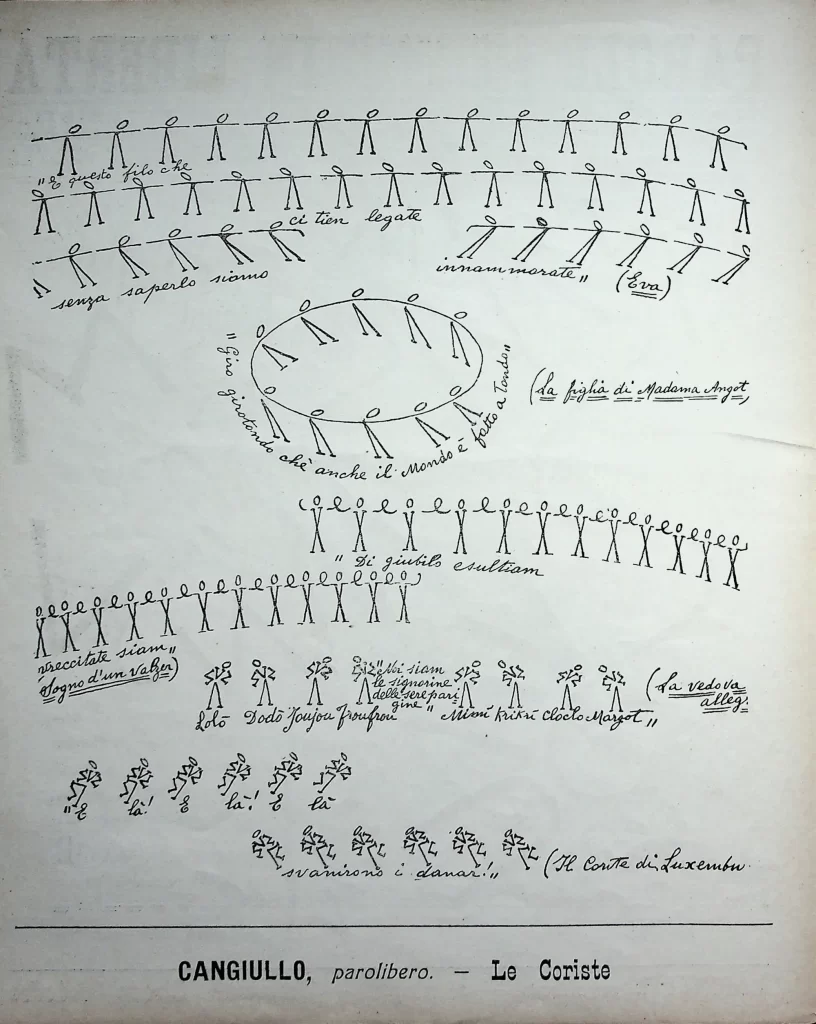 "E questo filo che
ci tien legate
senza saperlo siamo
innammorate" (Eva)
"Giro girotondo chè anche il Mondo è fatto a Tondo"
(La figlia di Madama Angot
"Di giubilo esultiam
siam"
Sogno d'un valzer)
"Noi siam
le signorine
delle sere pari
gine"
Lolò Dodò Joujou Froufrou Mimì Krikrì Cloclo Margot"
(La vedova
alleg.
"E là! E là! E là
svanirono i danar!" (Il Conte di Luxembu
CANGIULLO, parolibero. — Le Coriste